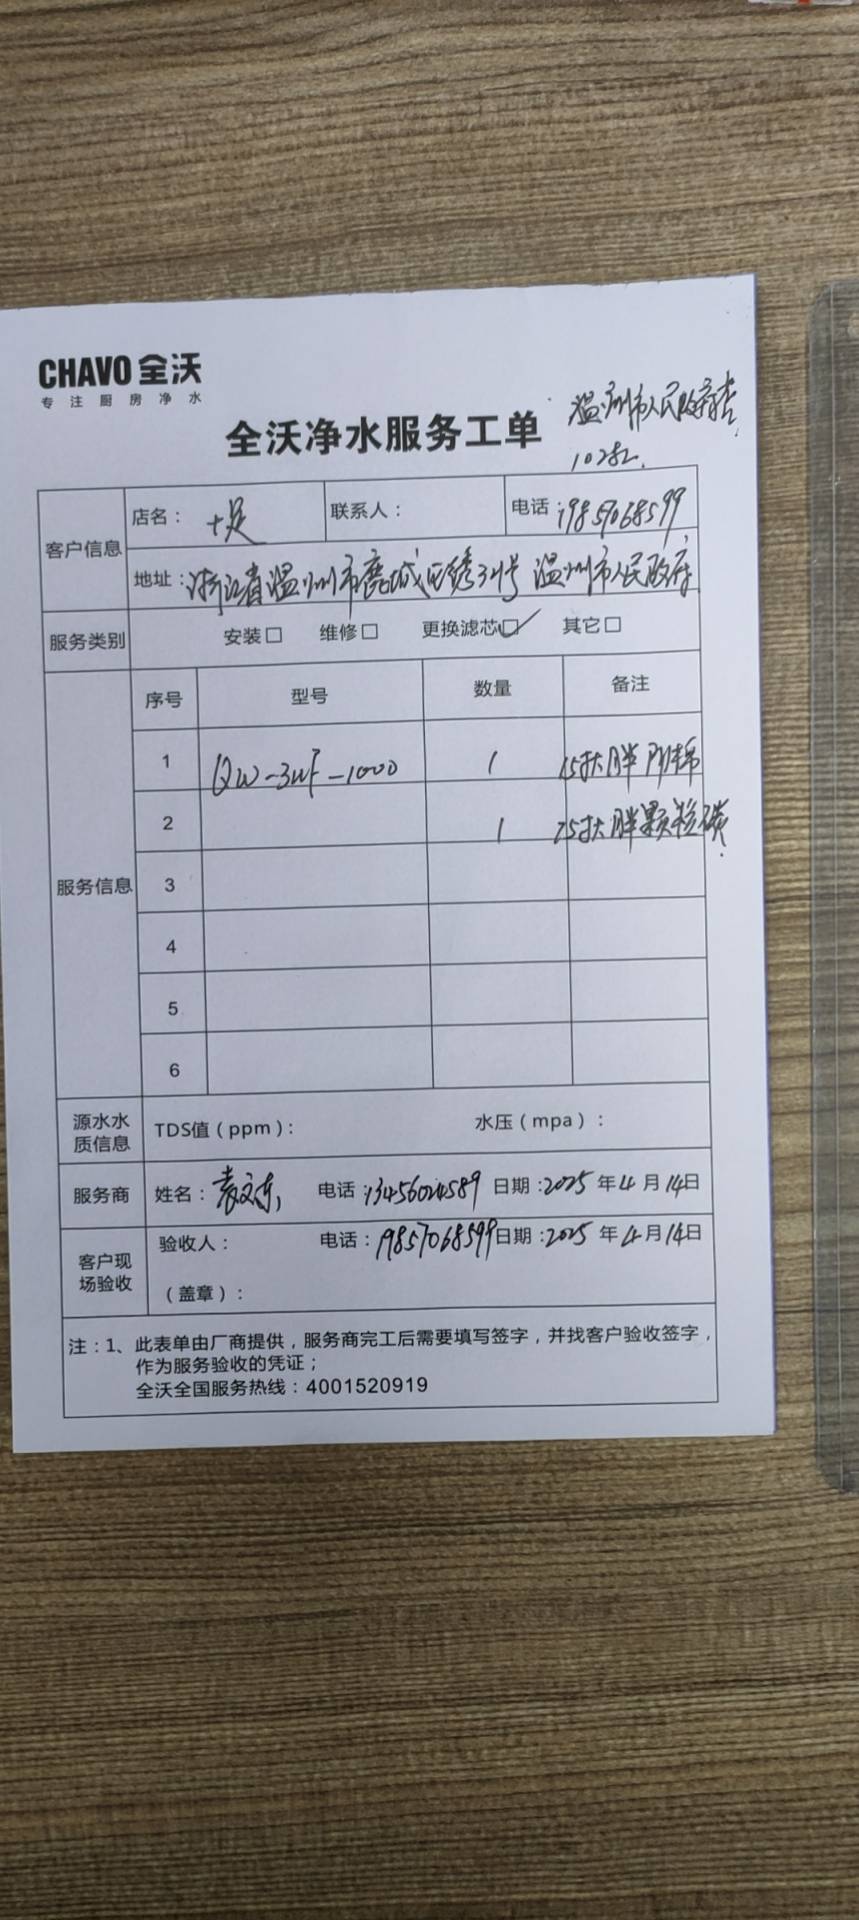 CHAVO 全沃
专注厨房净水
温州市人民政府
全沃净水服务工单
客户信息 店名：十足 联系人： 电话：19857068599
地址：浙江省温州市鹿城区绣 号 温州市人民政府
服务类别 安装□ 维修□ 更换滤芯☑ 其它□
服务信息 序号 型号 数量 备注
1 QW-3WF-1000 1 大胖PP棉
2 1 大胖颗粒碳
3
4
5
6
源水水质信息 TDS值（ppm）： 水压（mpa）：
服务商 姓名：袁文东 电话：13456024589 日期：2025年4月14日
客户现场验收 验收人： 电话：19857068599 日期：2025年4月14日
（盖章）：
注：1、此表单由厂商提供，服务商完工后需要填写签字，并找客户验收签字，
作为服务验收的凭证；
全沃全国服务热线：4001520919